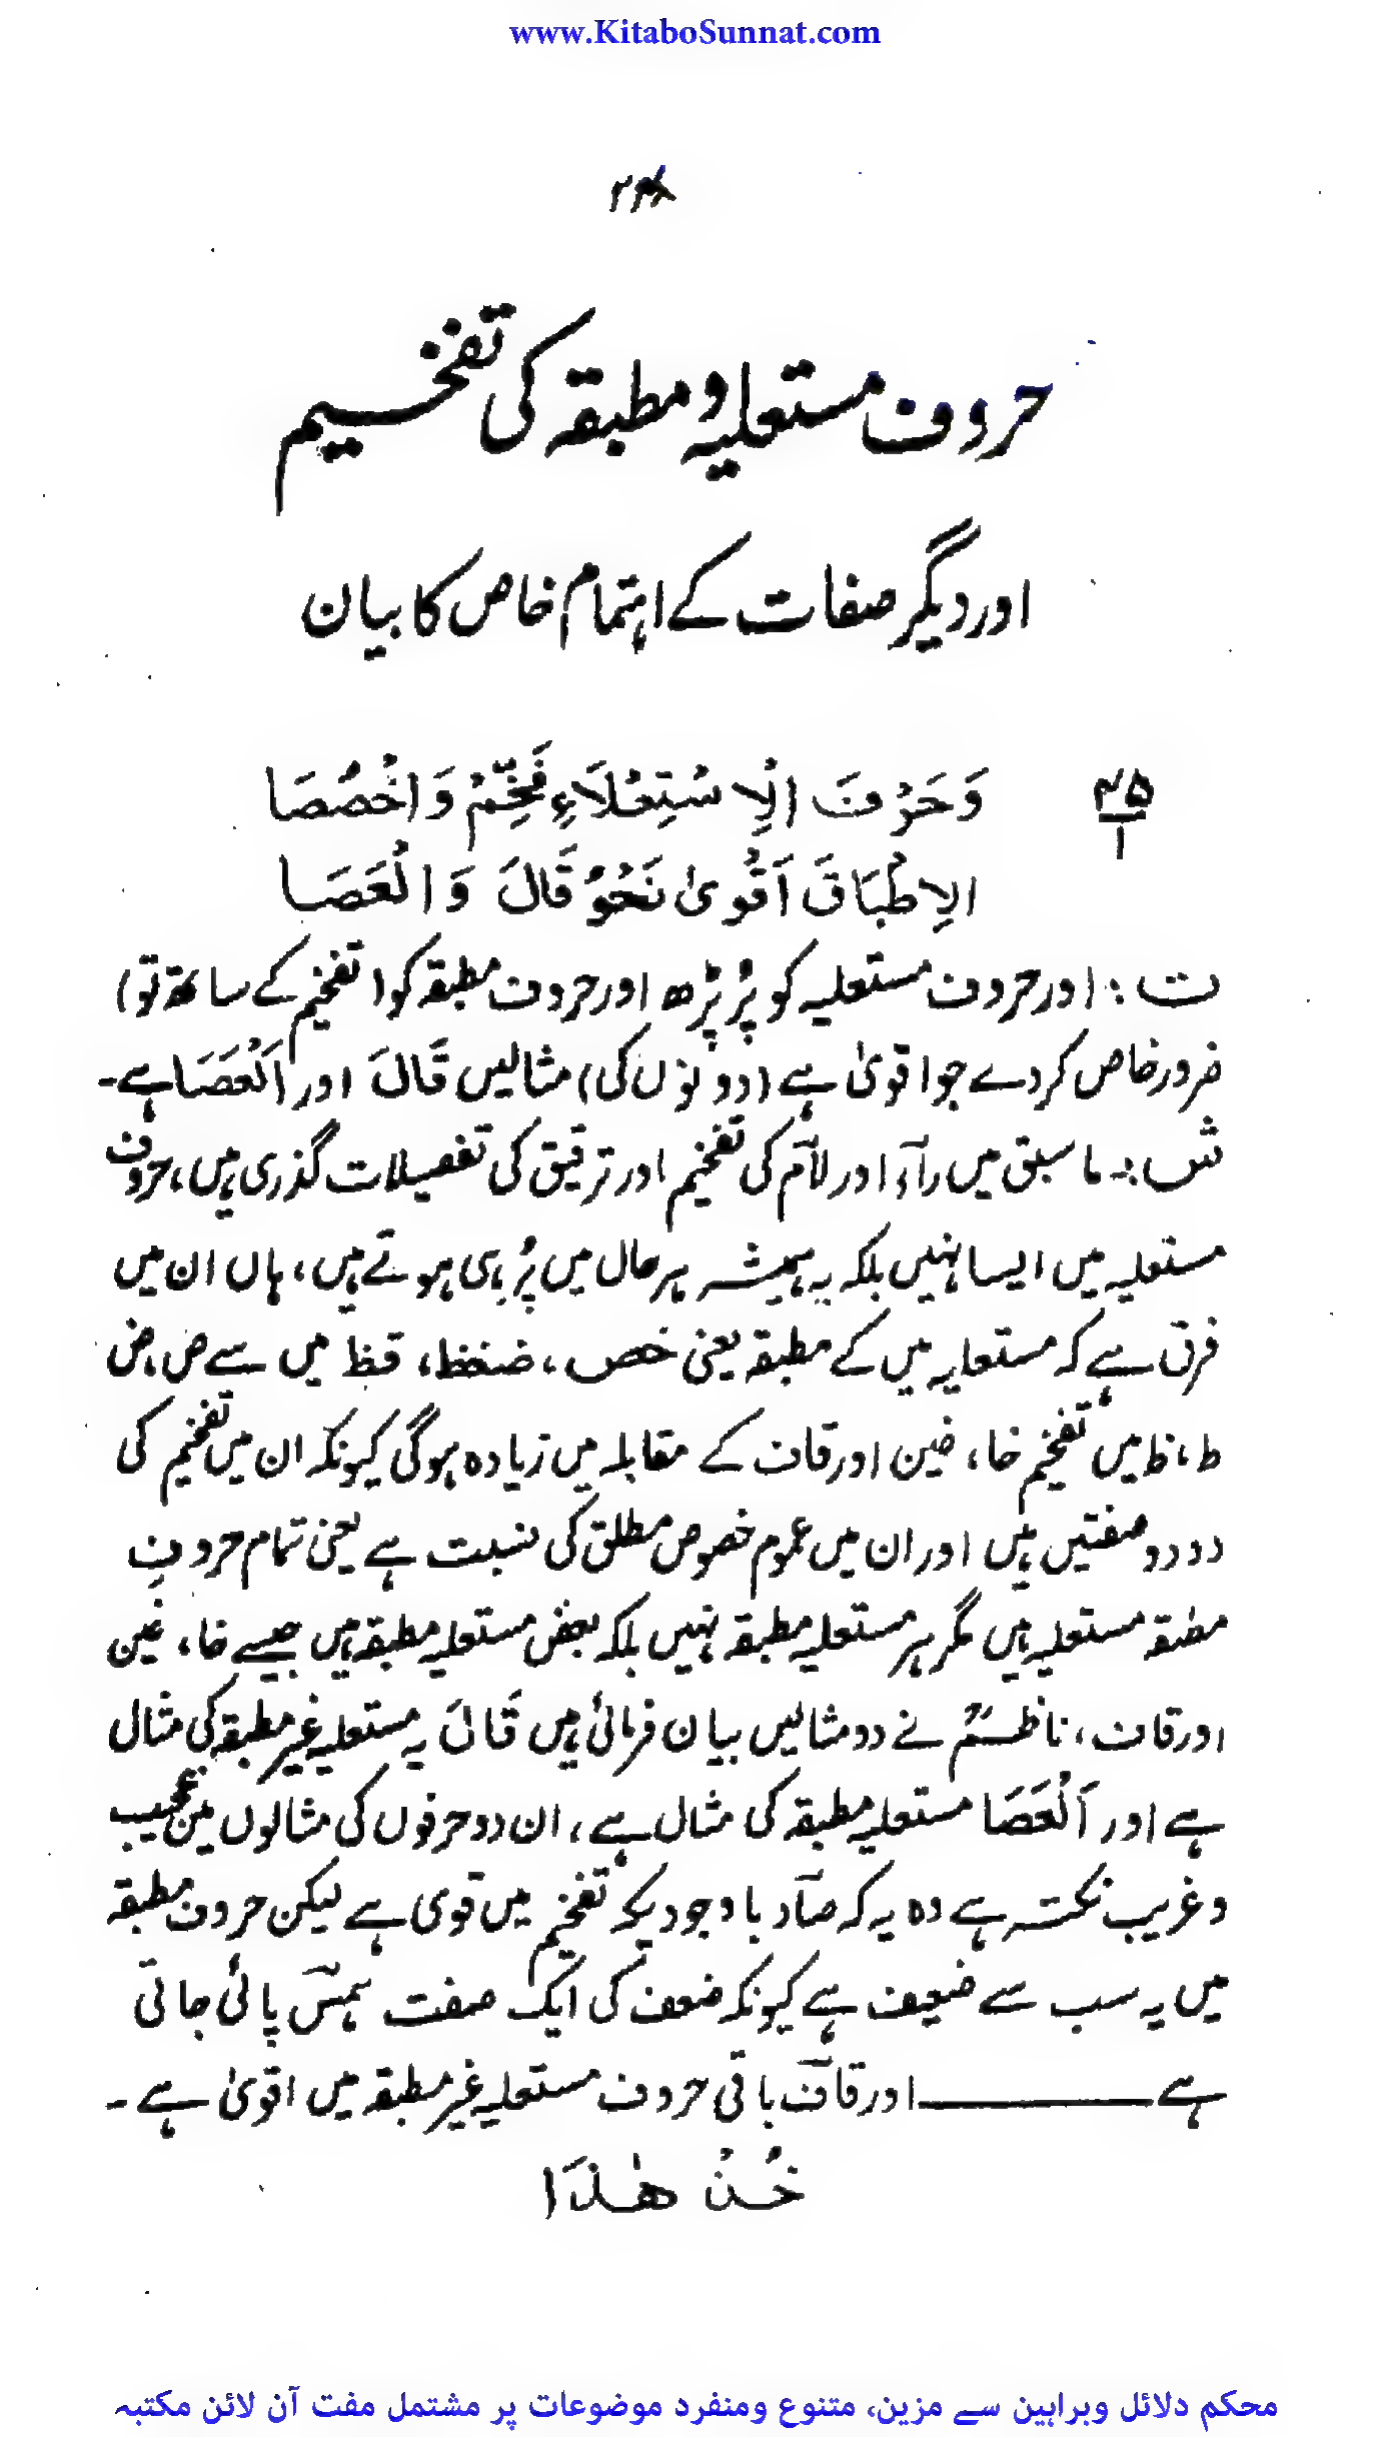 www.KitaboSunnat.com
حروف مستعلیہ و مطبقہ کی تفخیم
اور دیگر صفات کے اہتمام خاص کا بیان
۴۵
۱
وَحَرْفَ الْاِسْتِعْلَاءِ فَخِّمْ وَاخْصُصَا
الِاطْبَاقَ اَقْوىٰ نَحْوُ قَالَ وَالْعَصَا
ت: اور حروف مستعلیہ کو پُر پڑھ اور حروف مطبقہ کو (تفخیم کے ساتھ تو)
ضرور خاص کردے جو اقویٰ ہے (دونوں کی) مثالیں قَالَ اور اَلْعَصَا ہے۔
ش:۔ ماسبق میں رآء اور لآم کی تفخیم اور ترقیق کی تفصیلات گذری ہیں، حروف
مستعلیہ میں ایسا نہیں بلکہ یہ ہمیشہ ہر حال میں پُر ہی ہوتے ہیں، ہاں ان میں
فرق ہے کہ مستعلیہ میں کے مطبقہ یعنی خص، ضغط، قظ میں سے ص، ض
ط، ظ میں تفخیم خا، غین اور قاف کے مقابلہ میں زیادہ ہوگی کیونکہ ان میں تفخیم کی
دو دو صفتیں ہیں اور ان میں عموم خصوص مطلق کی نسبت ہے یعنی تمام حروفِ
مطبقہ مستعلیہ ہیں مگر ہر مستعلیہ مطبقہ نہیں بلکہ بعض مستعلیہ مطبقہ ہیں جیسے خا، غین
اور قاف، ناظمؒ نے دو مثالیں بیان فرمائی ہیں قَالَ یہ مستعلیہ غیر مطبقہ کی مثال
ہے اور اَلْعَصَا مستعلیہ مطبقہ کی مثال ہے، ان دو حرفوں کی مثالوں میں عجیب
و غریب نکتہ ہے وہ یہ کہ صآد باوجودیکہ تفخیم میں قوی ہے لیکن حروف مطبقہ
میں یہ سب سے ضعیف ہے کیونکہ ضعف کی ایک صفت ہمسؔ پائی جاتی
ہے ــــــــ اور قآف باقی حروف مستعلیہ غیر مطبقہ میں اقویٰ ہے۔
خُذْ هٰذَا
محکم دلائل وبراہین سے مزین، متنوع ومنفرد موضوعات پر مشتمل مفت آن لائن مکتبہ